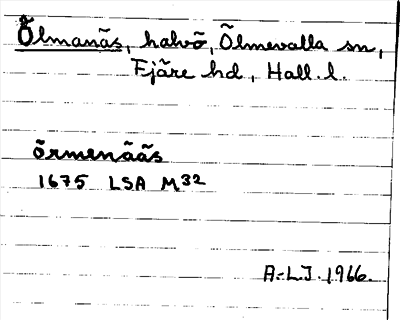 Õlmanãs, halvõ, Õlmevalla sn,
Fjãre hd, Hall. l.
õrmenããs
1675 LSA M32
A-LJ. 1966.